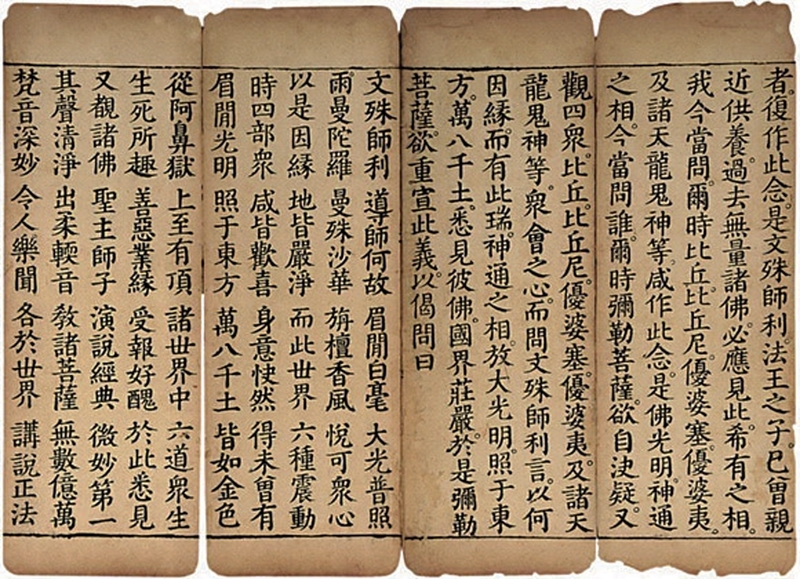 者。復作此念。是文殊師利。法王之子。已曾親
近供養。過去無量諸佛。必應見此。希有之相。
我今當問。爾時比丘。比丘尼。優婆塞。優婆夷。
及諸天龍鬼神等。咸作此念。是佛光明。神通
之相。今當問誰。爾時彌勒菩薩。欲自決疑。又
觀四衆。比丘。比丘尼。優婆塞。優婆夷。及諸天
龍鬼神等。衆會之心。而問文殊師利言。以何
因緣。而有此瑞。神通之相。放大光明。照于東
方。萬八千土。悉見彼佛。國界莊嚴。於是彌勒
菩薩。欲重宣此義。以偈問曰
文殊師利 導師何故 眉閒白毫 大光普照
雨曼陀羅 曼殊沙華 旃檀香風 悅可衆心
以是因緣 地皆嚴淨 而此世界 六種震動
時四部衆 咸皆歡喜 身意快然 得未曾有
眉閒光明 照于東方 萬八千土 皆如金色
從阿鼻獄 上至有頂 諸世界中 六道衆生
生死所趣 善惡業緣 受報好醜 於此悉見
又覩諸佛 聖主師子 演說經典 微妙第一
其聲清淨 出柔輭音 敎諸菩薩 無數億萬
梵音深妙 令人樂聞 各於世界 講說正法